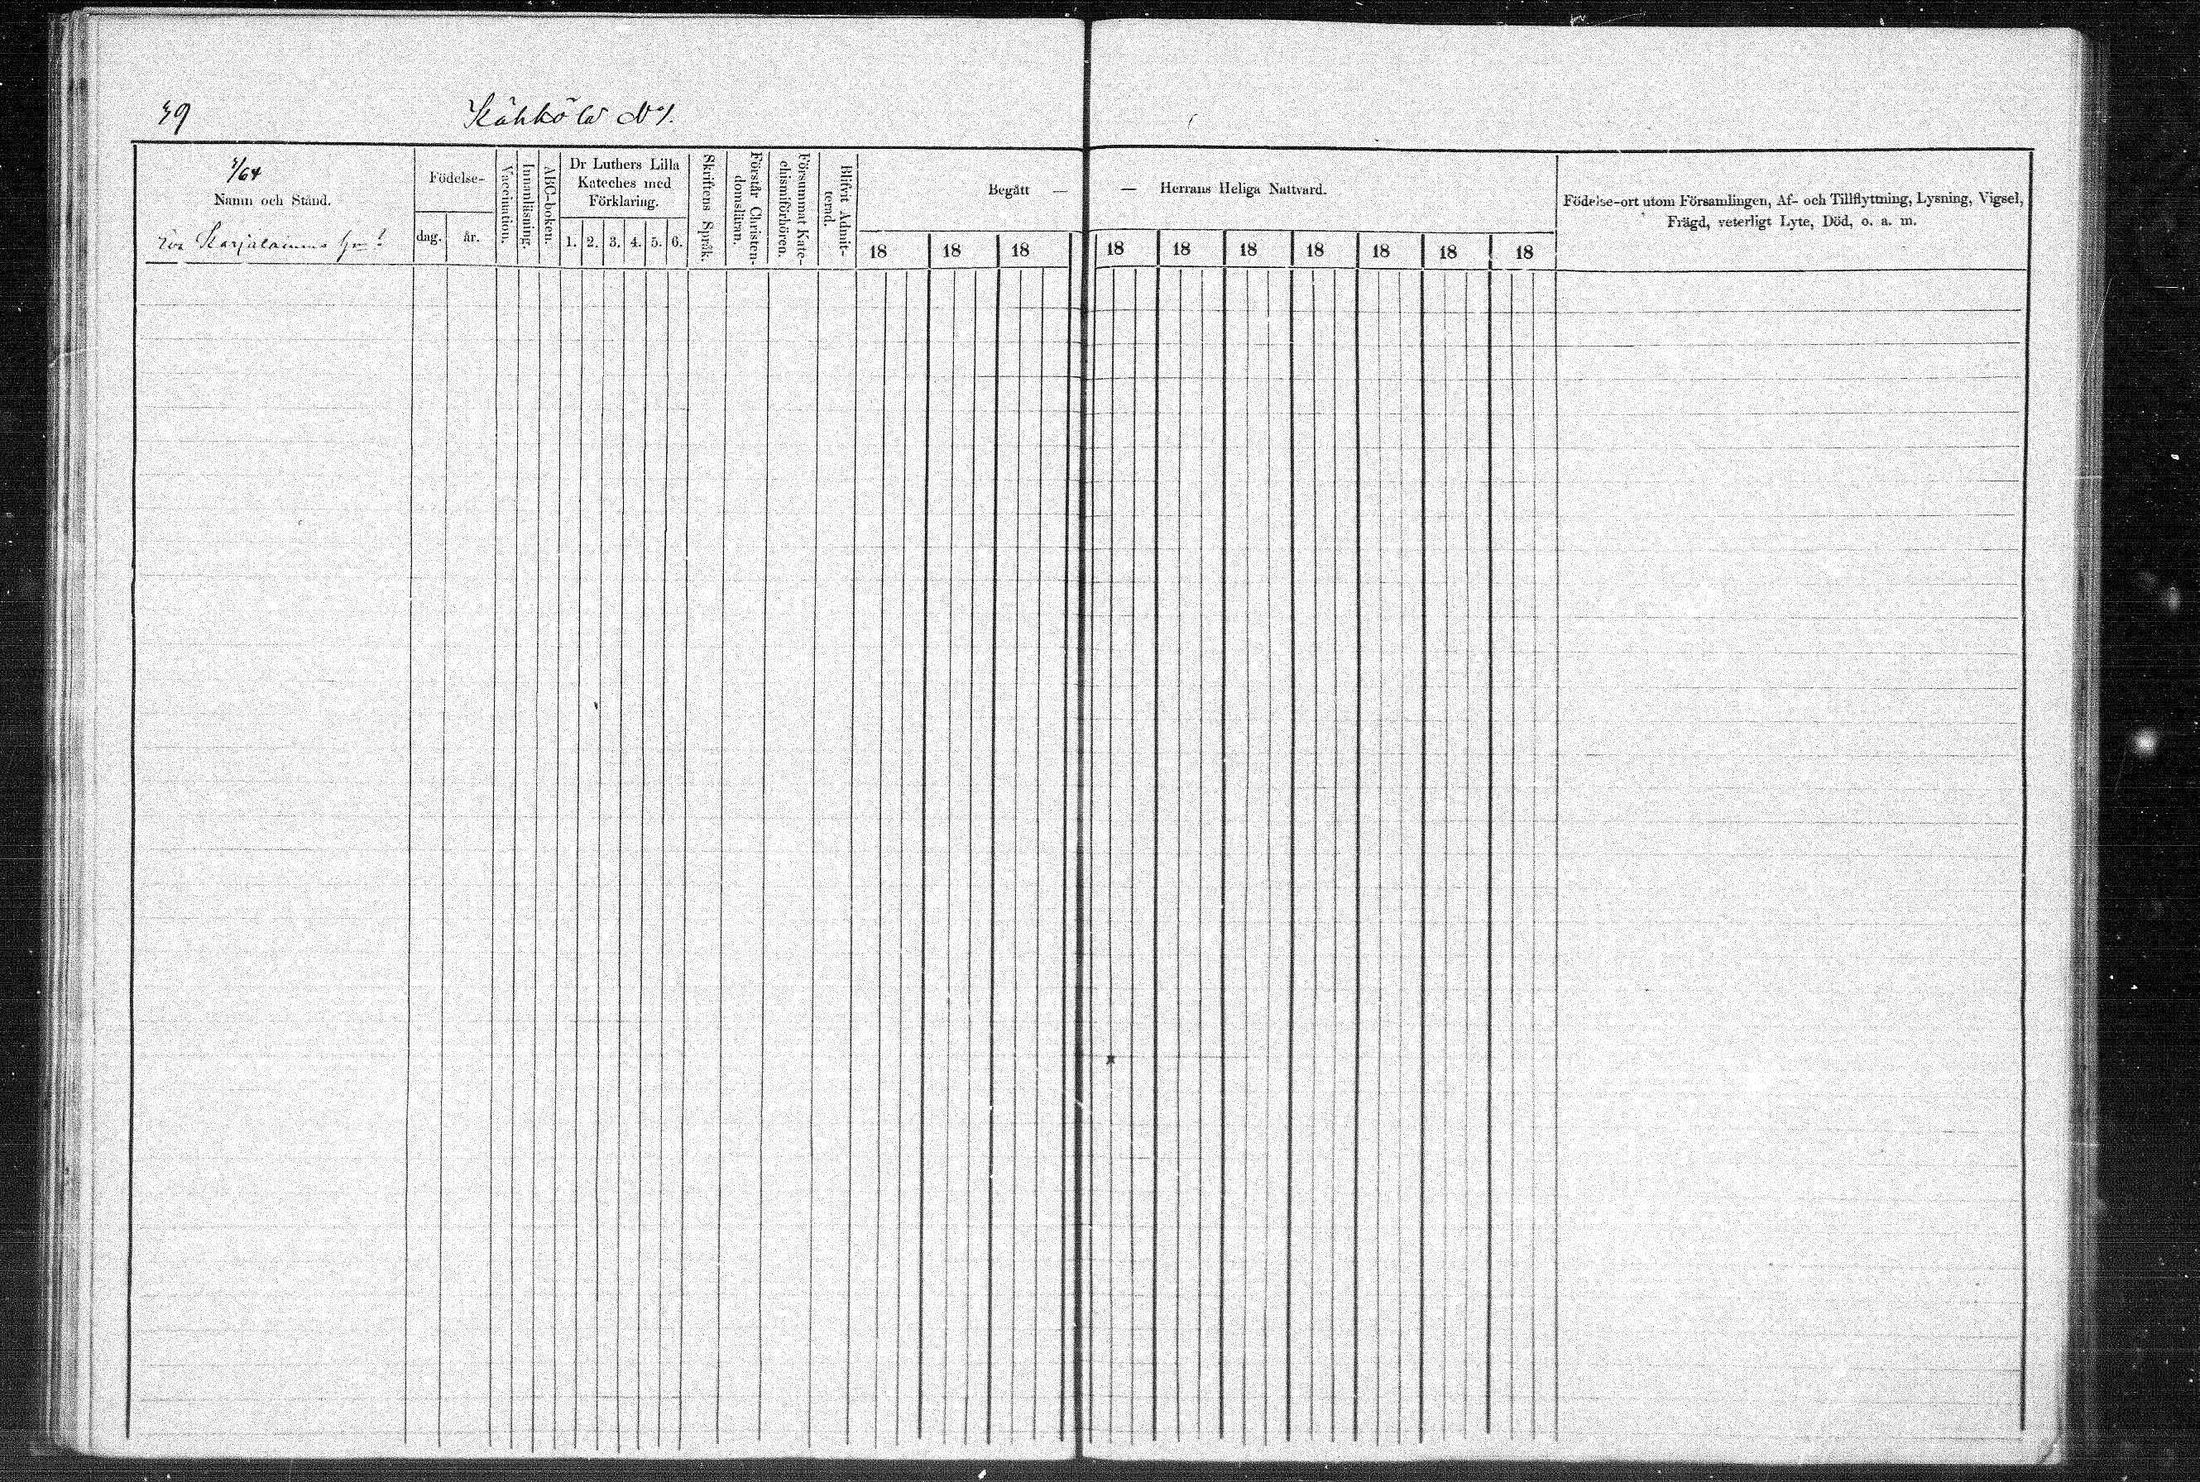 39
Kähkölä No 1.
1/64
Namn och Stånd.
Födelse-
dag.
år.
Vaccination.
Innanläsning.
ABC-boken.
Dr Luthers Lilla
Kateches med
Förklaring.
1. 2. 3. 4. 5. 6.
Skriftens Språk.
Förstår Christen-
domsläran.
Försummat Kate-
chismiförhören.
Blifvit Admit-
terad.
Begått —
— Herrans Heliga Nattvard.
18 18 18 18 18 18 18 18 18 18
Födelse-ort utom Församlingen, Af- och Tillflyttning, Lysning, Vigsel,
Frägd, veterligt Lyte, Död, o. a. m.
Karjalainens